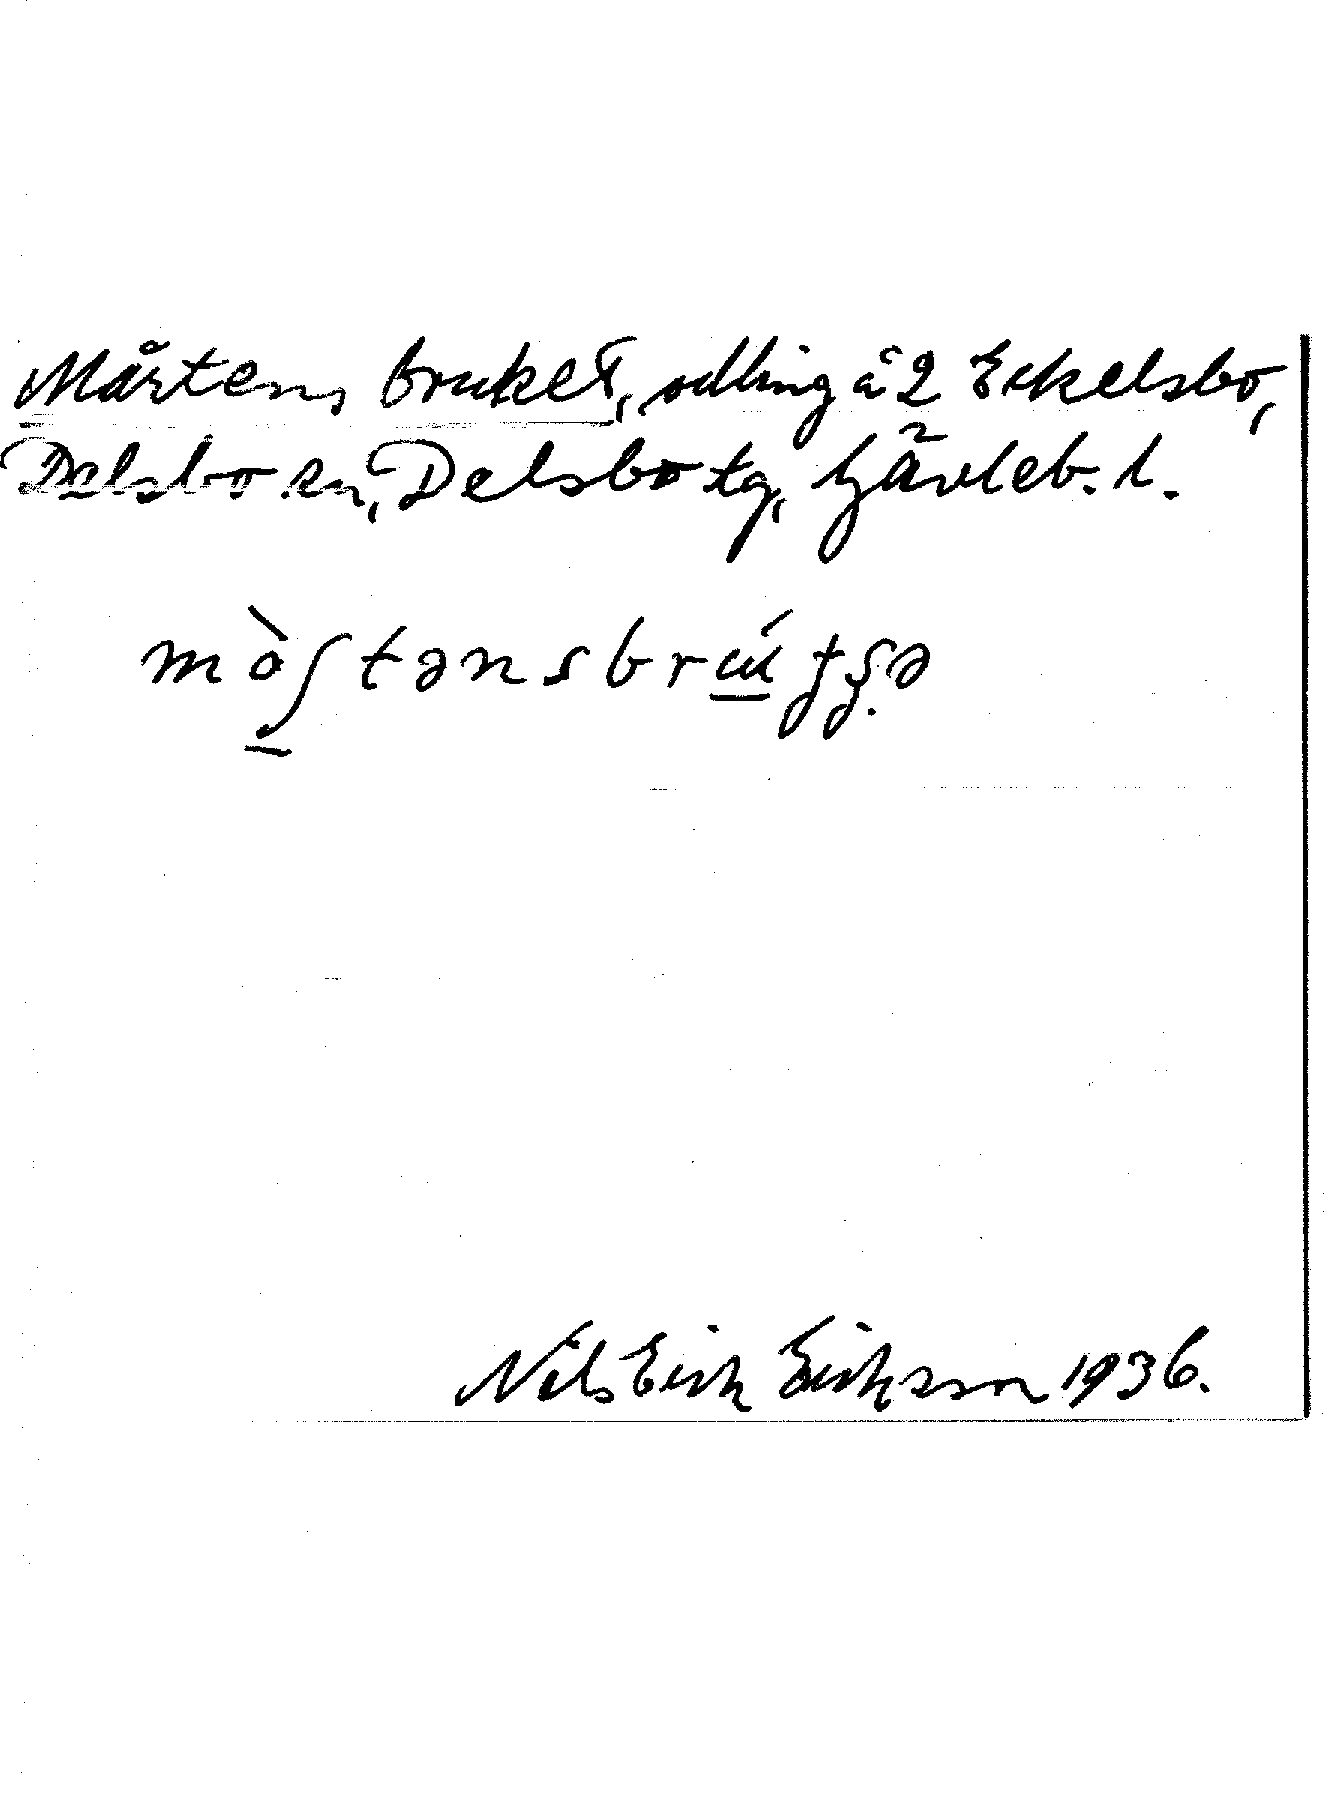 Mårtens bruket, odling å 2 Eckelsbo,
Delsbo sn, Delsbo tg, Gävleb. l.
Nils Erik Eriksson 1936.